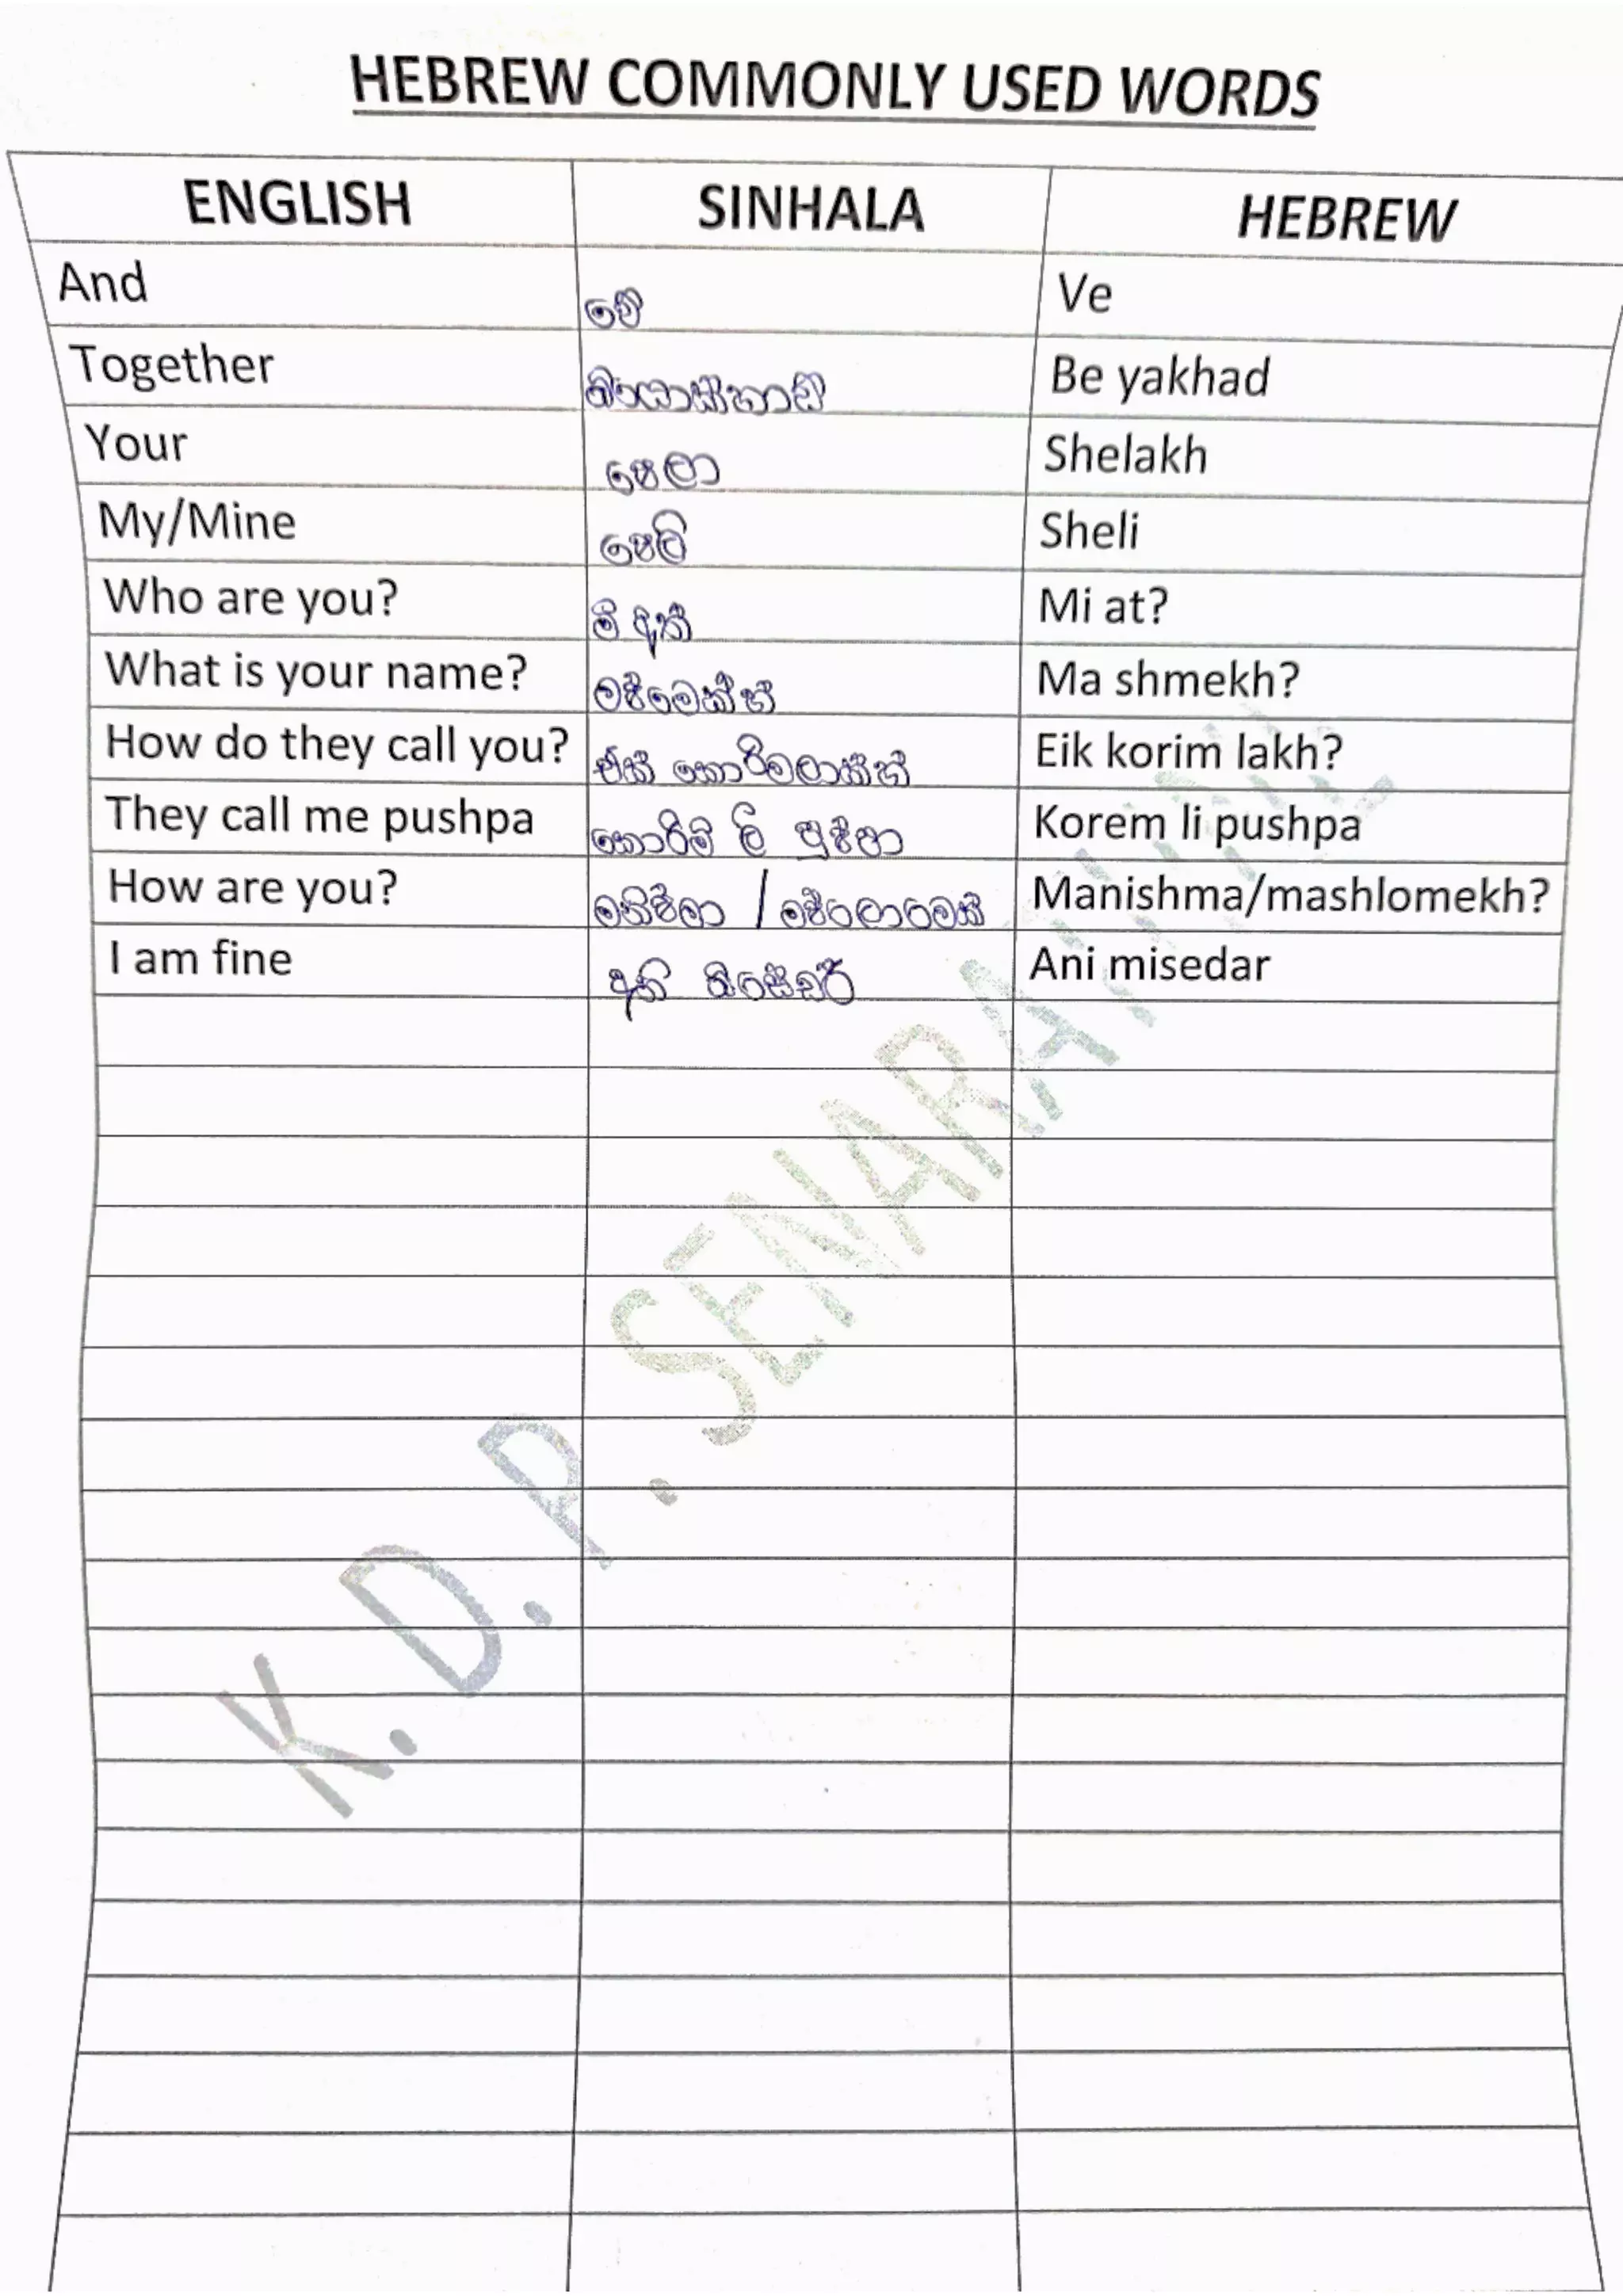 HEBREW COMMONLY USED WORDS
ENGLISH SINHALA HEBREW
And වේ Ve
Together බියාක්හාඩ් Be yakhad
Your ෂෙලා Shelakh
My/Mine ෂෙලි Sheli
Who are you? මි අත් Mi at?
What is your name? මෂ්මෙක්හ් Ma shmekh?
How do they call you? එක් කොරිම්ලාක්හ් Eik korim lakh?
They call me pushpa කොරිම් ලි පුෂ්පා Korem li pushpa
How are you? මනිෂ්මා / මෂ්ලොමෙක් Manishma/mashlomekh?
I am fine අනි මිසේදර් Ani misedar
K. D. P. SENARA